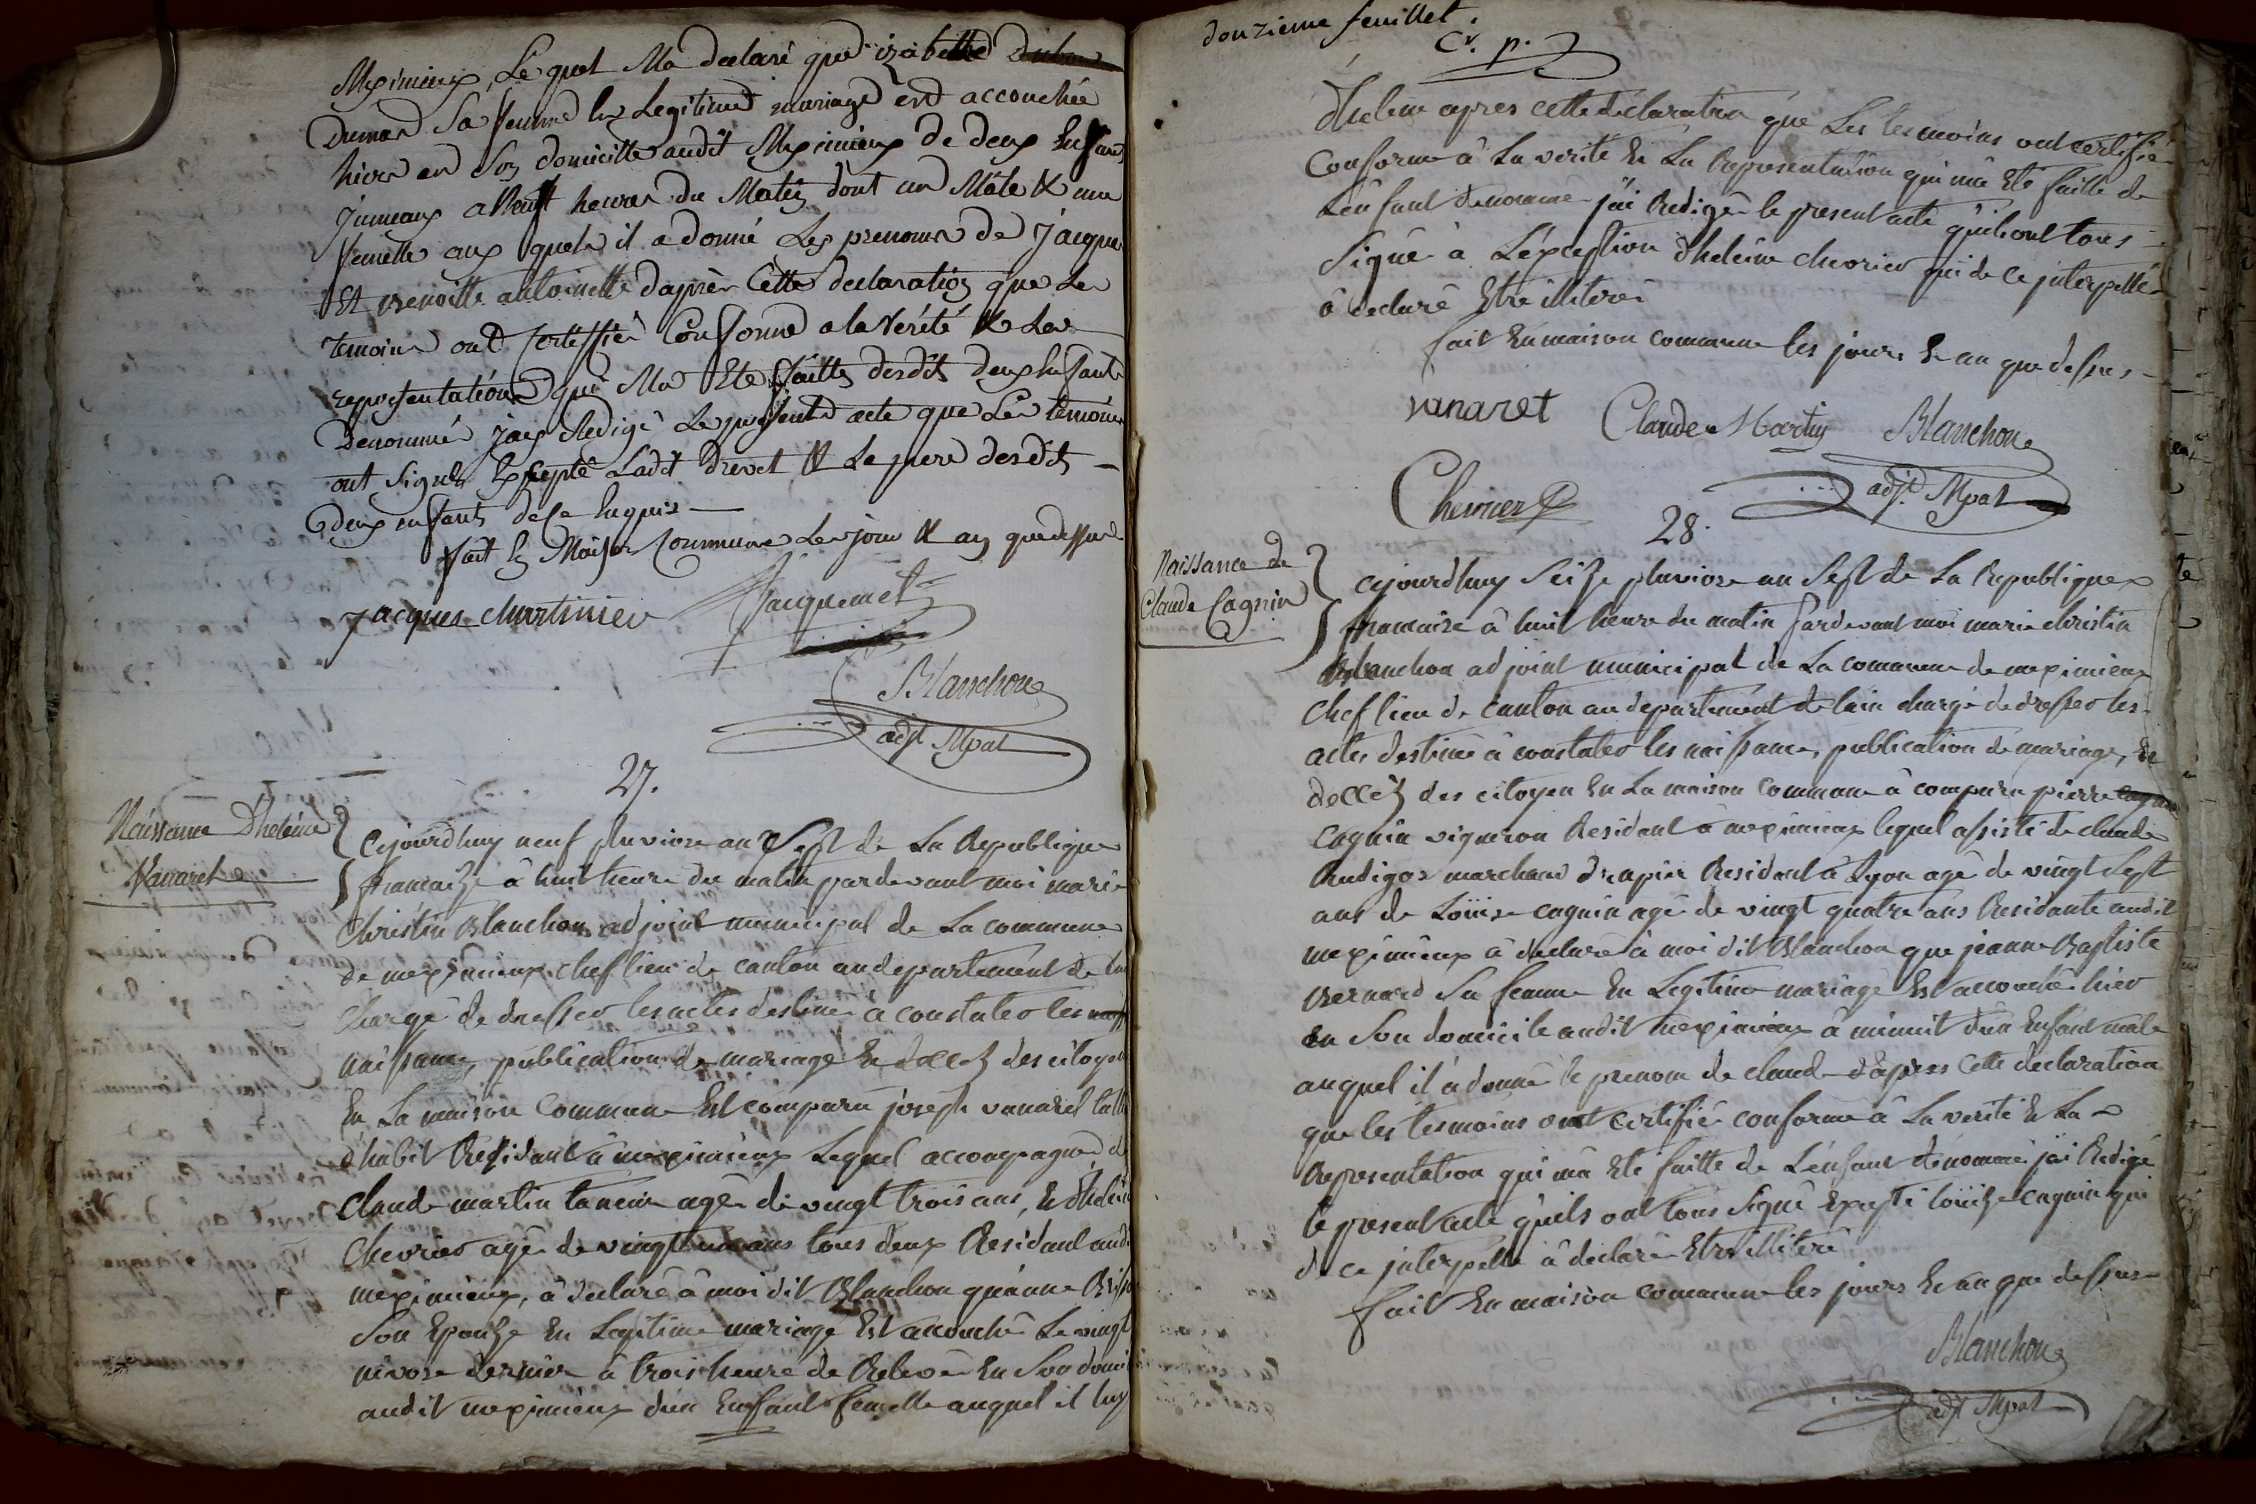 Meximieux, Le quel Ma declaré que izabelle
Dumas Sa femme En Legitime mariage est accouchée
hier en Son domicille audit Meximieux de deux Enfans
jumeaux a Neuf heures du Matin dont un Mâle & une
femelle aux quels il a donné Les prenoms de jacque
Et Benoitte antoinette d'après Cette declaration que Les
temoins ont certiffiér Conforme a la Vérité & La
representation qui Ma Eté faitte desdits deux Enfants
Denommés jay Redigé Le present acte que Les temoins
ont Signés Excepté Ladit Drevet & Le pere desdits
deux enfants de Ce Enquis
fait En Maison Commune Les jour & an que dessus
jacques chartinier Jacquemet
Blanchon
adjt Mpal
27.
Naissance D'heleine
Vanaret
Cejourd'huy neuf pluviose an Sept de La Republique
francaise à huit heure du matin pardevant moi marie
Christin Blanchon adjoint municipal de La commune
de meximieux chef lieu de canton au departement de
chargé de dresser les actes destiné à constater les
naissance, publication de mariage Et deccés des citoyen
En La maison Commune Est comparu joseph vanaret
d'habit Residant à meximieux Lequel accompagné de
claude martin taneur agé de vingt trois ans, Et d'heleine
Chevrier agé de vingt ans tous deux Residant audit
meximieux, à declaré à moi dit Blanchon qu'anne
Son Epouse En Legitime mariage Est accouché Le vingt
nivose dernier à trois heure de Relevée En Son domi
audit meximieux d'un Enfant femelle auquel il
douzieme feuillet.
Cr. p.
d'heleine apres cette declaration que Les tesmoins ont certifié
Conforme à La verité Et La Representation qui m'a Eté faitte de
L'enfant denommé j'ai Redigé le present acte qu'ils ont tous
Signé à L'exception d'heleine chevrier qui de ce interpellé
à declaré Etre illiteré
fait En maison commune les jours Et an que dessus
vanaret Claude Martin Blanchon
adjt Mpal
Chevrier
28.
Naissance de
Claude Cagnin
cejourd'huy Seize pluviose an Sept de La Republique
francaise à huit heure du matin Pardevant moi marie christin
Blanchon adjoint municipal de La commune de meximieux
Chef lieu de canton au departement de lain chargé de dresser les
actes destiné à constater les naissance, publication de mariage, Et
deccés des citoyen En La maison Commune à comparu pierre
cagnin vigneron Resident à meximieux lequel assisté de claude
marchand drapier Resident à Lyon agé de vingt Sept
ans de Loüise cagnin agé de vingt quatre ans Residante audit
meximieux à declaré à moi dit Blanchon que jeanne Baptiste
Bernard Sa femme En Legitime mariage Est accouché hier
en Son domicile audit meximieux à minuit d'un Enfant male
auquel il à donné le prenom de claude d'après Cette declaration
que les tesmoins ont certifié conforme à La verité Et La
Representation qui m'a Eté faitte de L'enfant dénommé j'ai Redigé
le present acte qu'ils ont tous Signé Excepté loüise cagnin qui
de ce interpellé à declaré Etre illiteré
fait En maison commune les jours Et an que dessus
Blanchon
adjt Mpal